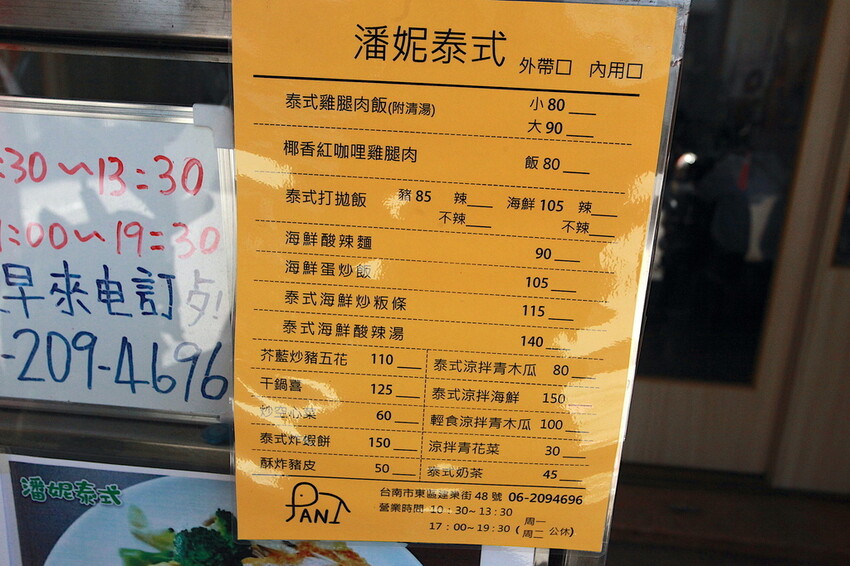 潘妮泰式 外帶口 內用口
泰式雞腿肉飯(附清湯) 小80___
大90___
椰香紅咖哩雞腿肉 飯80___
泰式打拋飯 豬85 辣___ 海鮮105 辣___
不辣___ 不辣___
海鮮酸辣麵 90___
海鮮蛋炒飯 105___
泰式海鮮炒粄條 115___
泰式海鮮酸辣湯 140___
芥藍炒豬五花 110___ 泰式涼拌青木瓜 80___
干鍋喜 125___ 泰式涼拌海鮮 150___
炒空心菜 60___ 輕食涼拌青木瓜 100___
泰式炸蝦餅 150___ 涼拌青花菜 30___
酥炸豬皮 50___ 泰式奶茶 45___
PANI
台南市東區建東街48號 06-2094696
營業時間 10:30~13:30
17:00~19:30 (周一 周二 公休)
:30~13:30
:00~19:30
早來电訂
-209-4696
潘妮泰式